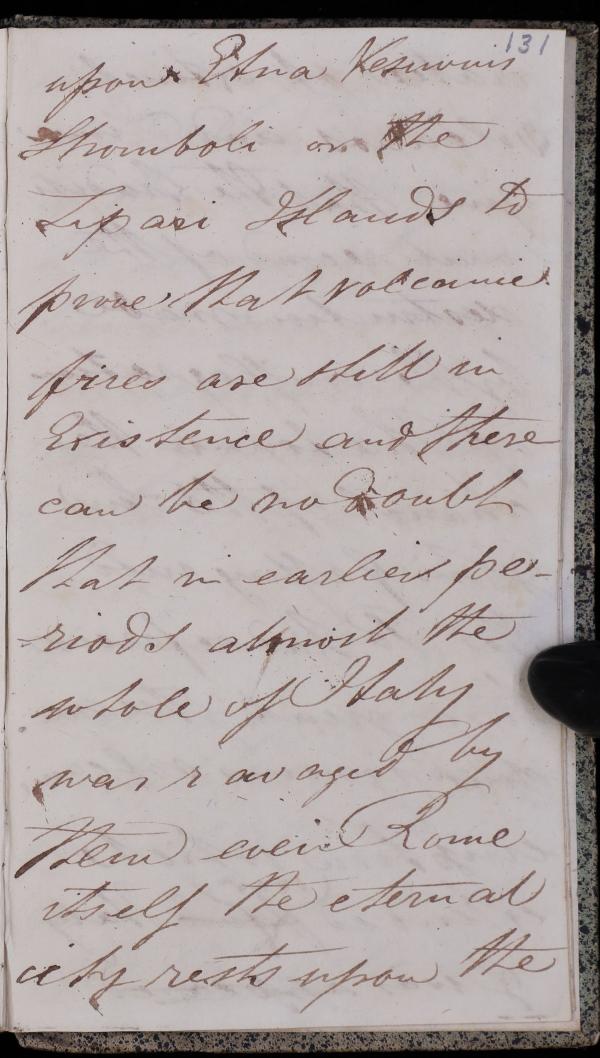 131
upon Etna Vesuvius
Stromboli or the
Lipari Islands to
prove that volcanic
fires are still in
Existence and there
can be no doubt
that in earlier pe-
-riods almost the
whole of Italy
was ravaged by
them even Rome
itself the eternal
city rests upon the